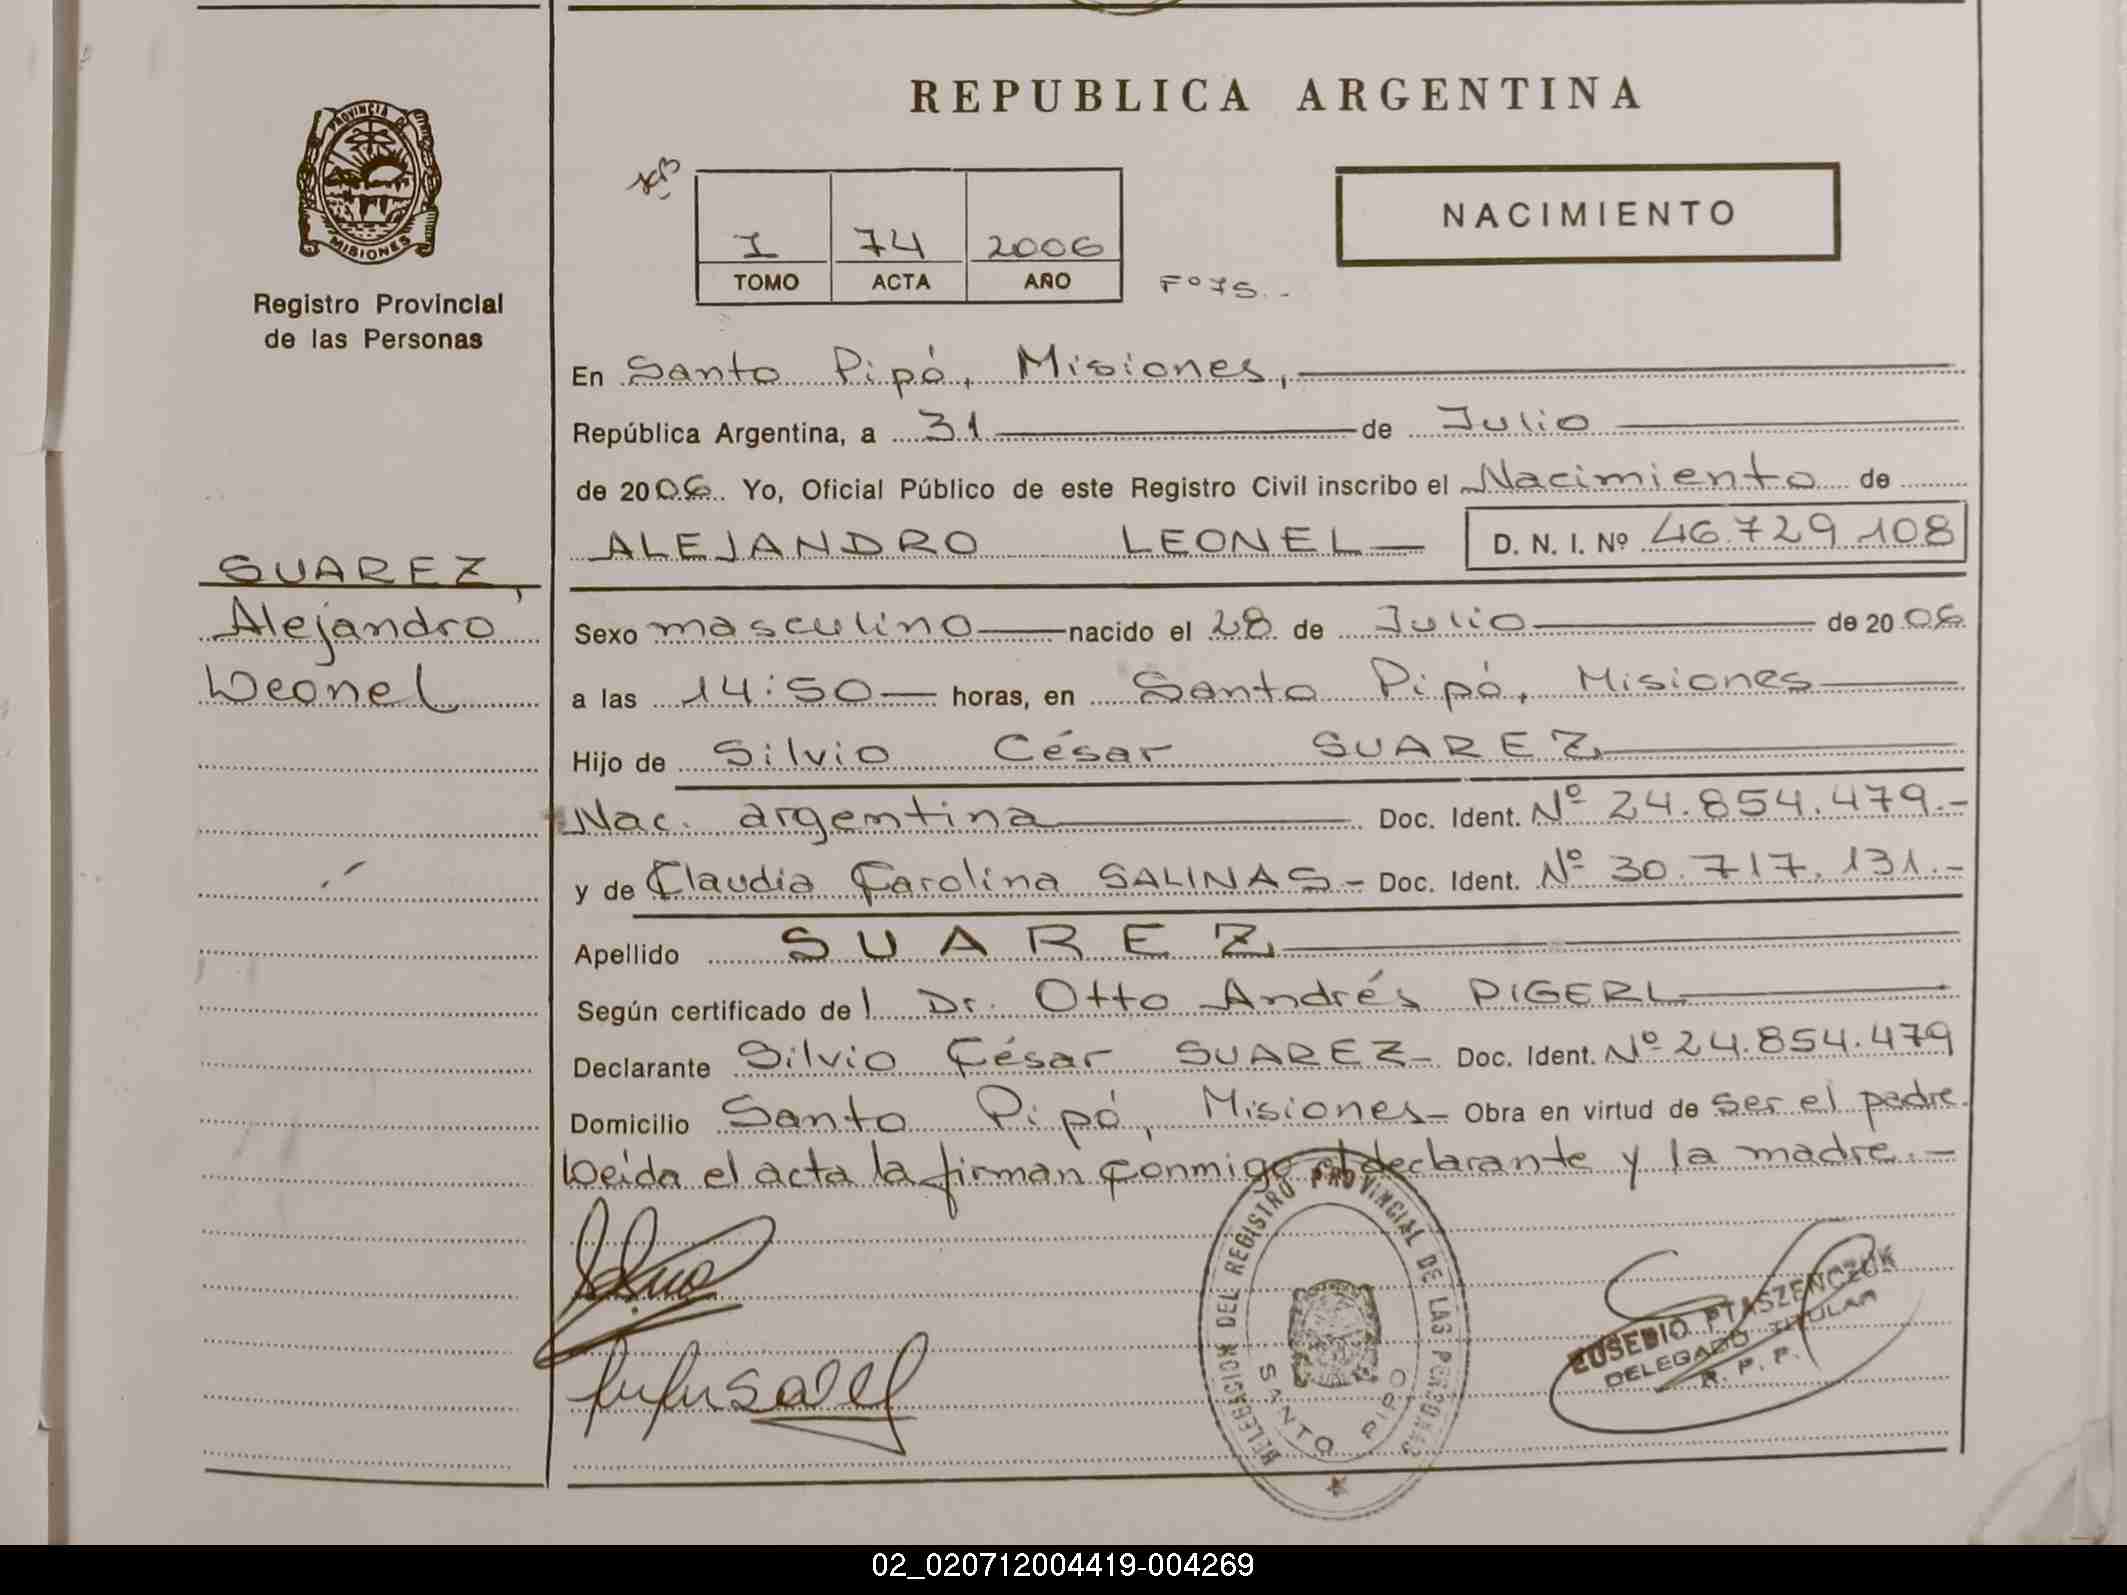 REPUBLICA ARGENTINA
PROVINCIA DE
MISIONES
Registro Provincial
de las Personas
I 74 2006
TOMO ACTA AÑO
Fº 75.-
NACIMIENTO
En Santo Pipó, Misiones,
República Argentina, a 31 de Julio
de 2006. Yo, Oficial Público de este Registro Civil inscribo el Nacimiento de
ALEJANDRO LEONEL D. N. I. Nº 46.729.108
SUAREZ,
Alejandro
Leonel
Sexo masculino nacido el 28 de Julio de 2006
a las 14:50 horas, en Santo Pipó, Misiones
Hijo de Silvio César SUAREZ
Nac. argentina Doc. Ident. Nº 24.854.479.-
y de Claudia Carolina SALINAS - Doc. Ident. Nº 30.717.131.-
Apellido SUAREZ
Según certificado del Dr. Otto Andrés PIGERL
Declarante Silvio César SUAREZ - Doc. Ident. Nº 24.854.479
Domicilio Santo Pipó, Misiones - Obra en virtud de ser el padre.
Leída el acta la firman conmigo el declarante y la madre.-
DELEGACION DEL REGISTRO PROVINCIAL DE LAS PERSONAS
SANTO PIPO
EUSEBIO PTASZENCZUK
DELEGADO TITULAR
R. P. P.
02_020712004419-004269